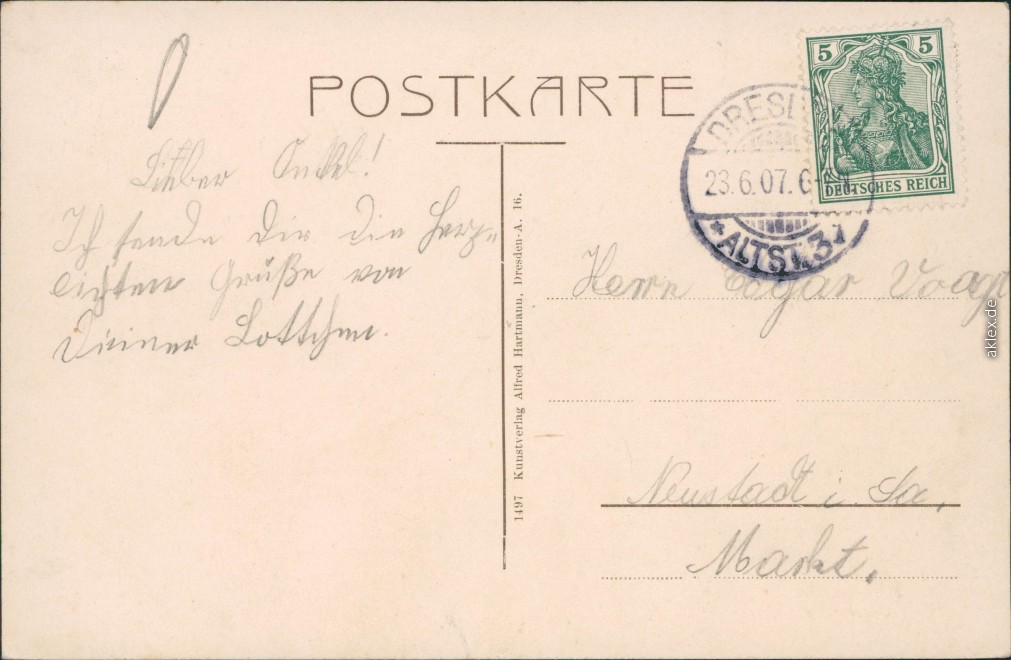 POSTKARTE
5 5
DEUTSCHES REICH
DRESD
23.6.07. 6-
*ALTST. 3
Lieber Onkel!
Ich sende Dir die herz-
lichsten Grüße von
Deiner Lottchen.
1497 Kunstverlag Alfred Hartmann, Dresden-A. 16.
Herrn Edgar Voigt
Neustadt i. Sa.
Markt.
aklex.de